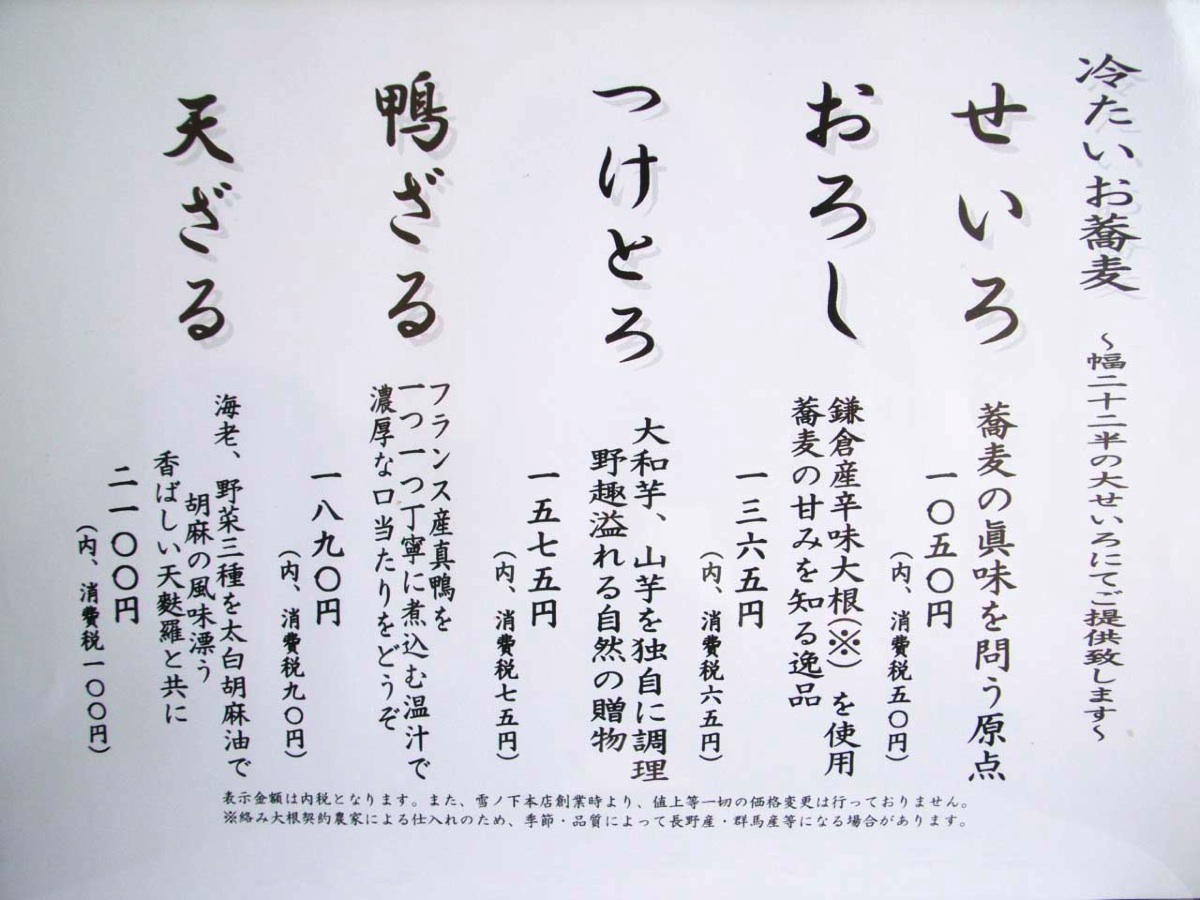 冷たいお蕎麦 ～幅二十二半の大せいろにてご提供致します～
せいろ
蕎麦の眞味を問う原点
一〇五〇円
（内、消費税五〇円）
おろし
鎌倉産辛味大根（※）を使用
蕎麦の甘みを知る逸品
一三六五円
（内、消費税六五円）
つけとろ
大和芋、山芋を独自に調理
野趣溢れる自然の贈物
一五七五円
（内、消費税七五円）
鴨ざる
フランス産真鴨を
一つ一つ丁寧に煮込む温汁で
濃厚な口当たりをどうぞ
一八九〇円
（内、消費税九〇円）
天ざる
海老、野菜三種を太白胡麻油で
胡麻の風味漂う
香ばしい天麩羅と共に
二一〇〇円
（内、消費税一〇〇円）
表示金額は内税となります。また、雪ノ下本店創業時より、値上等一切の価格変更は行っておりません。
※絡み大根契約農家による仕入れのため、季節・品質によって長野産・群馬産等になる場合があります。